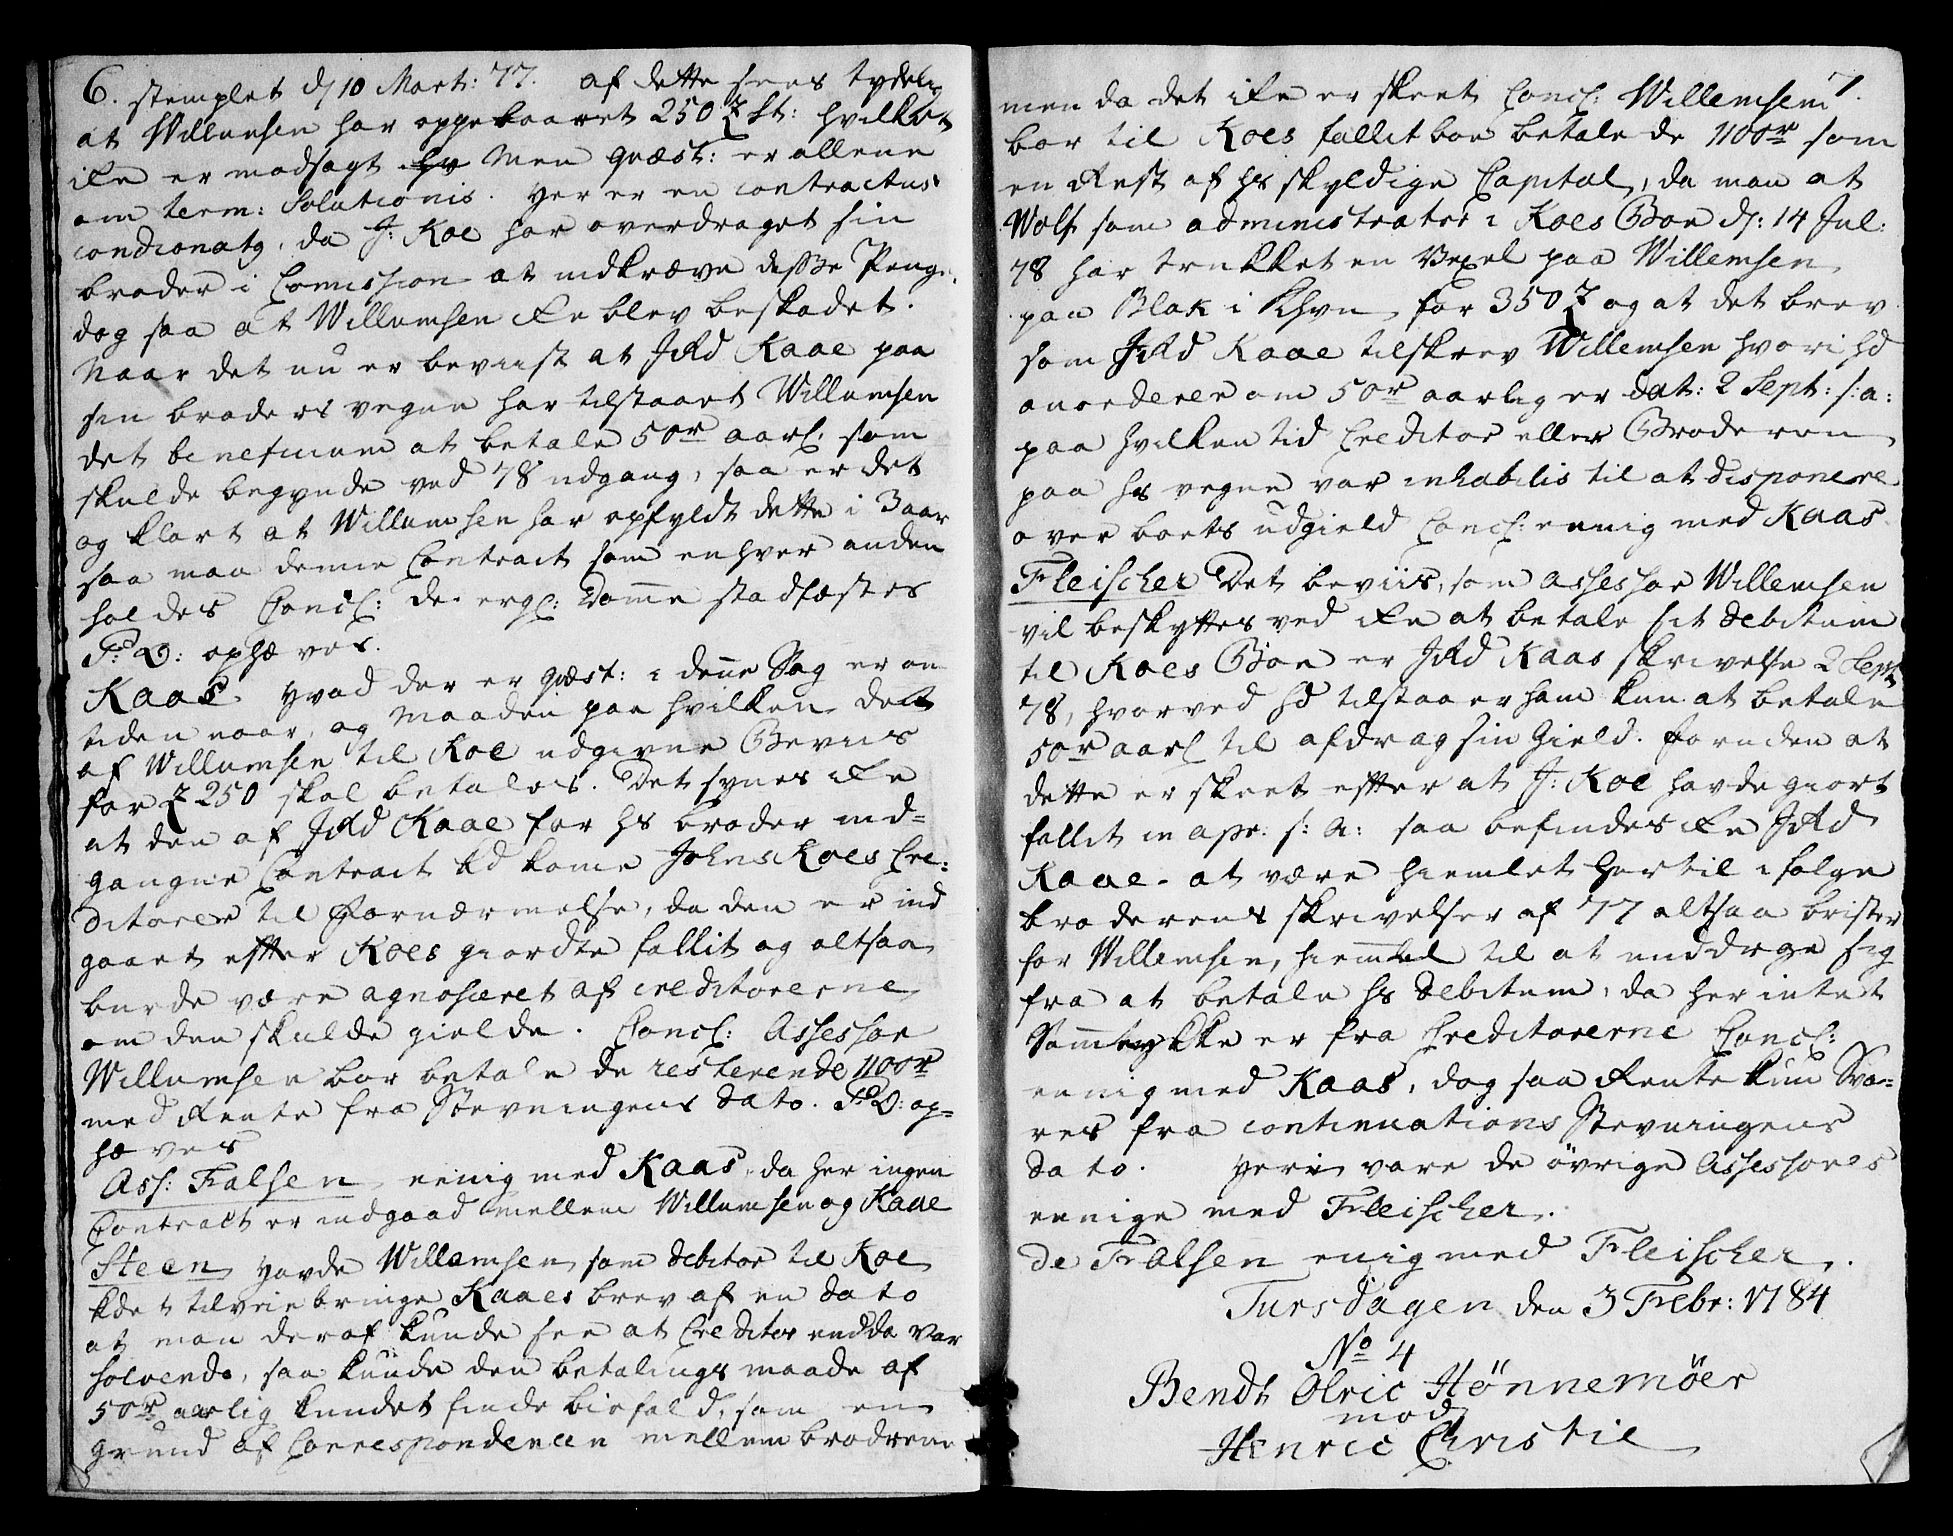 6. stemplet d 10 Mart: 77. af dette sees tydelig
at Willumsen har oppebaaret 250 £ st: hvilket
ike er modsagt hv Men qvæst: er allene
om term: Solutionis. Her er en contractus
condionatg, da J: Koe har overdraget sin
broder i Comission at indkræve disse Penge,
dog saa at Willumsen ike blev beskadet.
Naar det nu er beviist at JAd Kaae paa
sin broders vegne har tilstaaet Willumsen
det beneficium at betale 50r aarl: som
skulde begynde ved 78 udgang, saa er det
og klart at Willumsen har opfyldt dette i 3 aar
saa maa denne Contract som enhver anden
holdes Concl: de ergl: Domme stadfæstes
P: D: ophæves.
Kaas. Hvad der er qvæst: i denne Sag er om
tiden naar, og Maaden paa hvilken dett
af Willumsen til Koe udgivne Beviis
for £ 250 skal betales. Det synes ike
at den af JAd Kaae for hs broder ind=
gangne Contract kd kome Johns Koes Cre=
ditorer til Fornærmelse, da den er ind
gaaet efter Koes giordte fallit og altsaa
burde være agnosceret af creditorerne
om den skulde gielde. Concl: Assessor
Willumsen bør betale de resterende 1100r
med Rente fra Stevningens dato. P: D: op=
hæves
Ass: Falsen eenig med Kaas, da her ingen
Contract er indgaad mellem Willumsen og Kaae
Steen Havde Willemsen som debitor til Koe
kdet tilveiebringe Kaaes brev af en dato
at man deraf kunde see at Creditor endda var
solvendo, saa kunde den betalings maade af
50r aarlig kundet finde biefald, som en
grund af Correspondencen mellem brødrene
7.
men da det ike er skeet Concl: Willemsen
bør til Koes fallitboe betale de 1100r som
en Rest af hs skyldige Capital, da man at
Wolf som administrator i Koes Boe d: 14 Jul:
78 har trukket en Vexel paa Willemsen
paa Blak i Khvn for 350 £ og at det brev
som JAd Kaae tilskrev Willemsen hvori hd
anorderer om 50r aarlig er dat: 2 Sept: s: a:
paa hvilken tid Creditor eller Broderen
paa hs vegne var inhabilis til at disponere
over boets udgield Concl: eenig med Kaas
Fleischer Det beviis, som Assessor Willemsen
vil beskyttes ved ike at betale sit debitum
til Koes Boe er JAd Kaas skrivelse 2 Sept
78, hvorved hd tilstaaer ham kun at betale
50r aarl til afdrag sin Gield. foruden at
dette er skeet efter at J: Koe havde giort
fallit in apr: s: a: saa befindes ike JAd
Kaae at være hiemlet hertil ifølge
broderens skrivelser af 77 altsaa brister
for Willemsen, hiemmel til at unddrage sig
fra at betale hs debitum, da her intet
Samtykke er fra Creditorerne Concl:
eenig med Kaas, dog saa Rente kun Sva=
res fra continuations Stevningens
dato. Heri vare de øvrige Assessores
eenige med Fleischer.
de Falsen enig med Fleischer.
Tursdagen den 3 Febr: 1784
No 4
Bendt Olric Hønnemöer
mod
Henric Christie